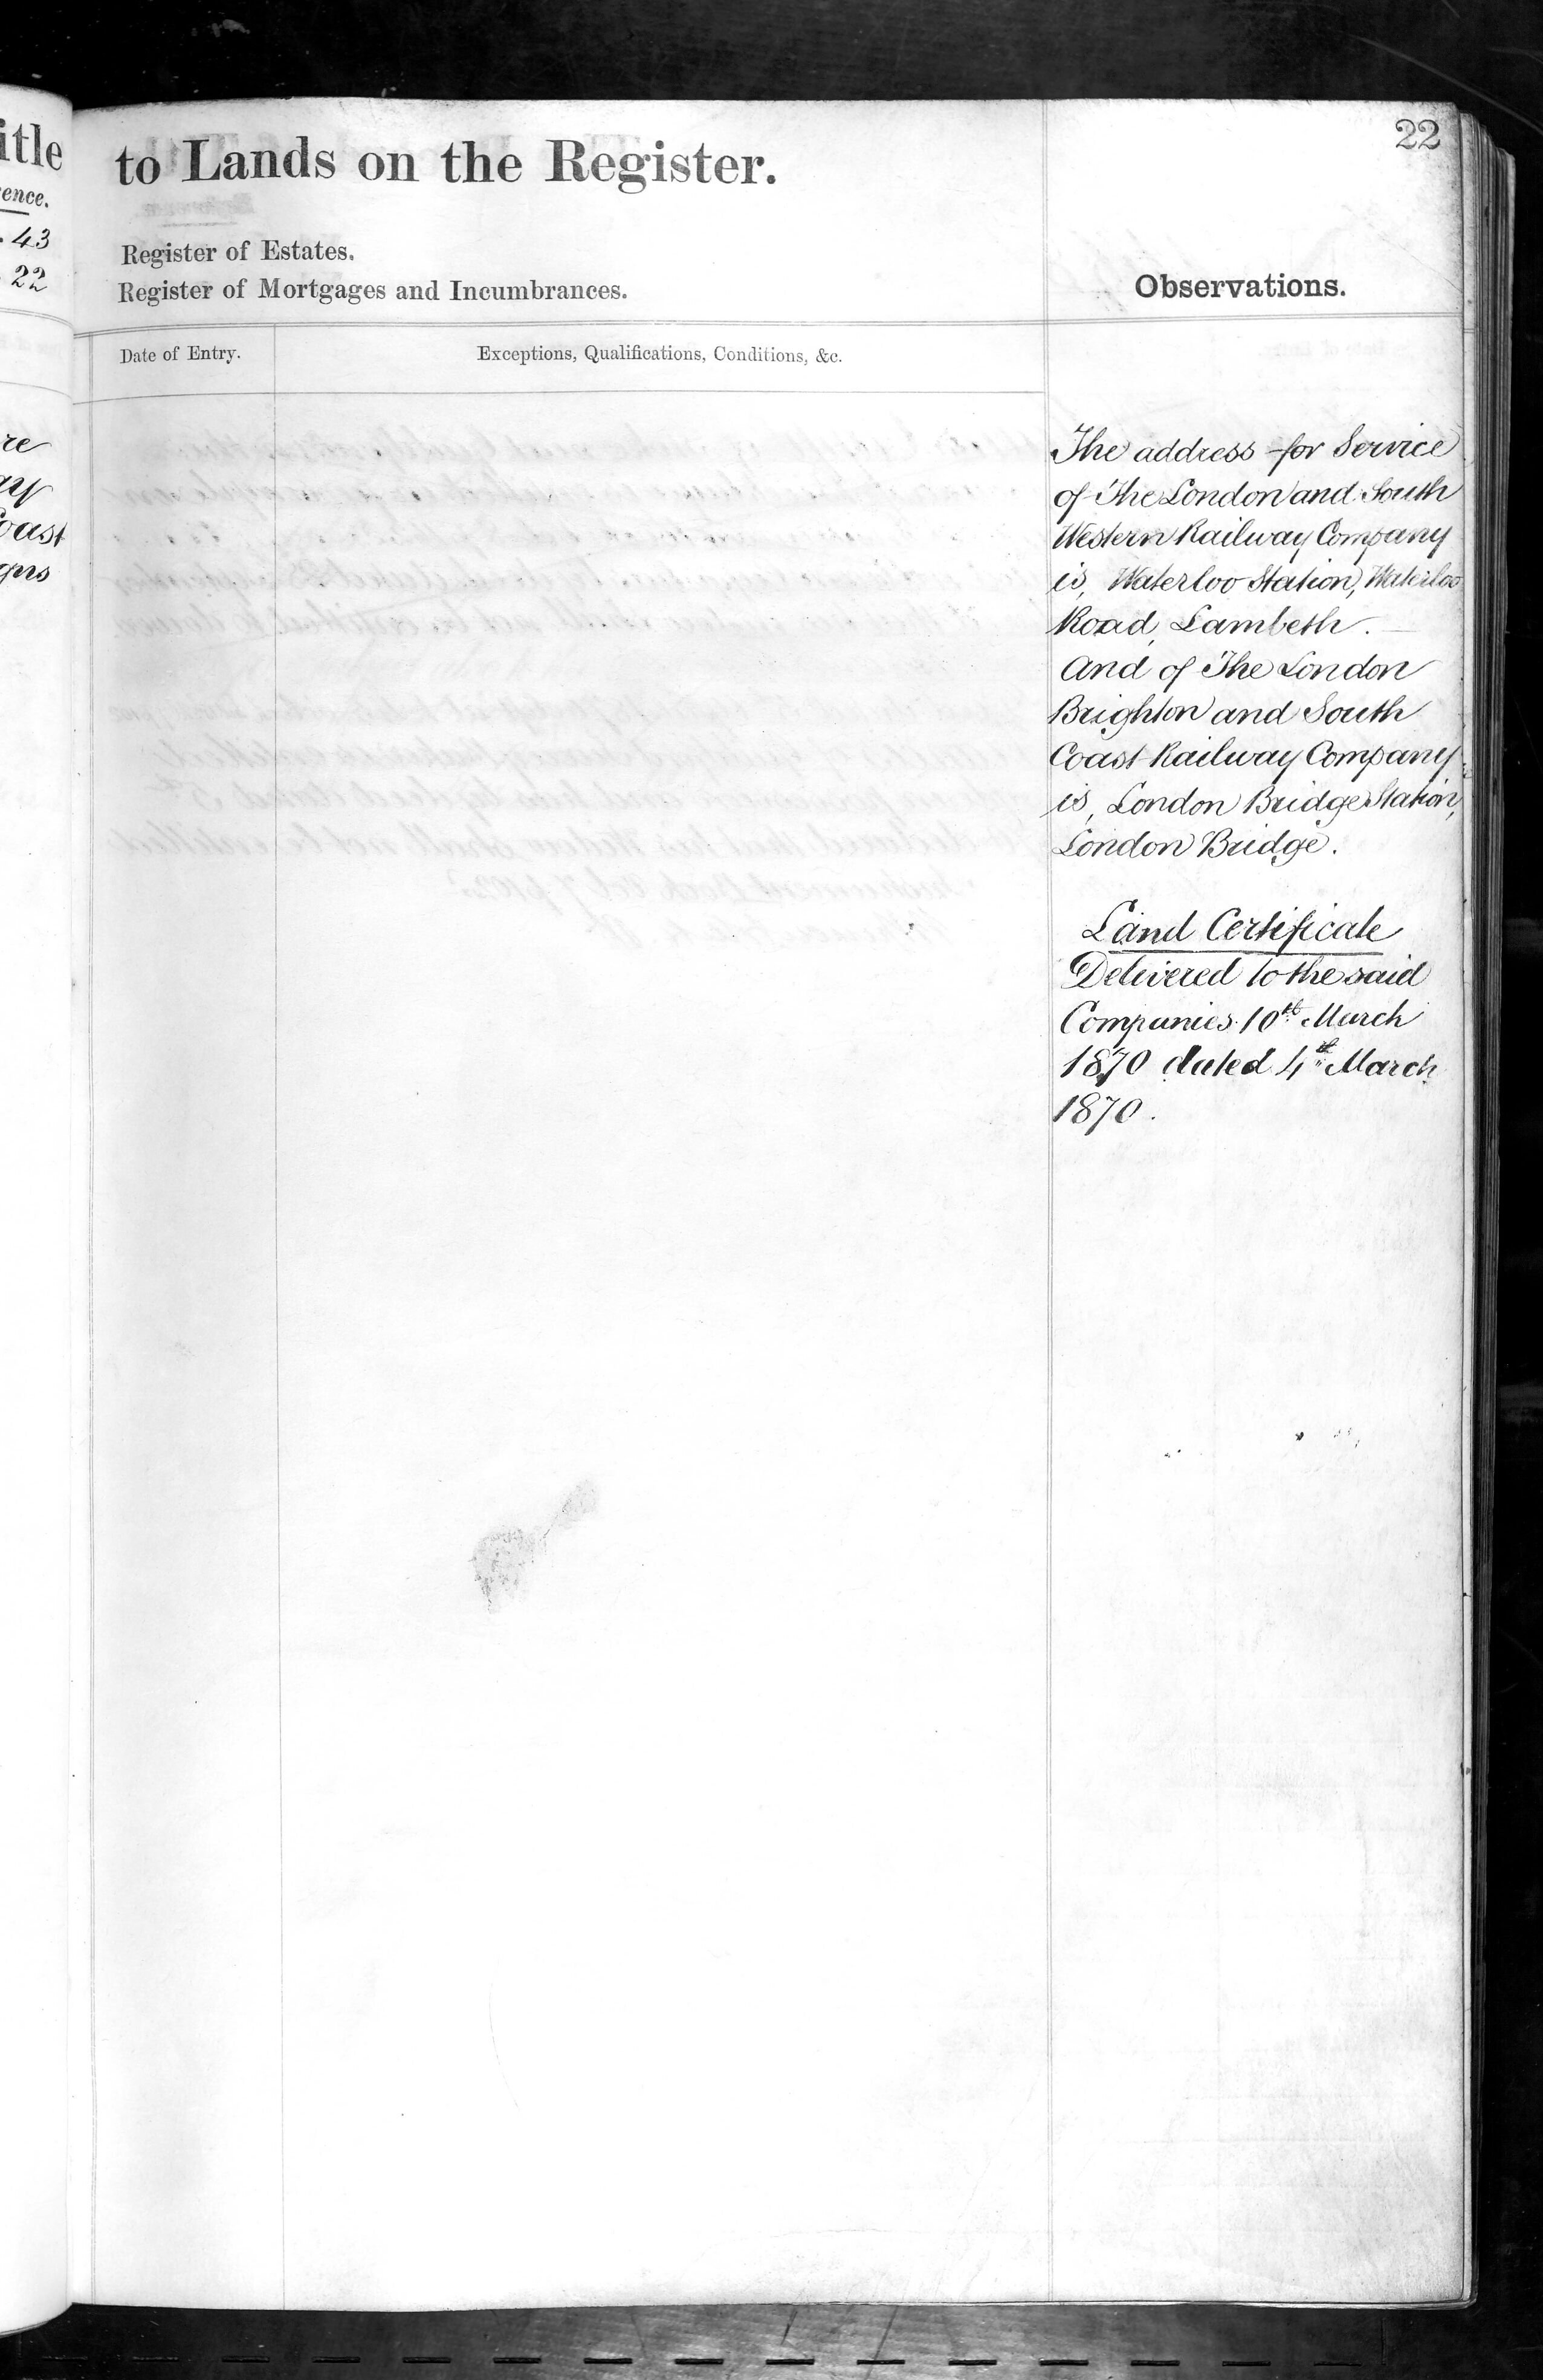 itle
ence.
43
22
re
ay
Coast
gns
22
to Lands on the Register.
Register of Estates.
Register of Mortgages and Incumbrances.
Observations.
Date of Entry.
Exceptions, Qualifications, Conditions, &c.
The address for Service
of The London and South
Western Railway Company
is, Waterloo Station, Waterloo
Road, Lambeth.
And of The London
Brighton and South
Coast Railway Company
is, London Bridge Station,
London Bridge.
Land Certificate
Delivered to the said
Companies 10th March
1870 dated 4th March
1870.